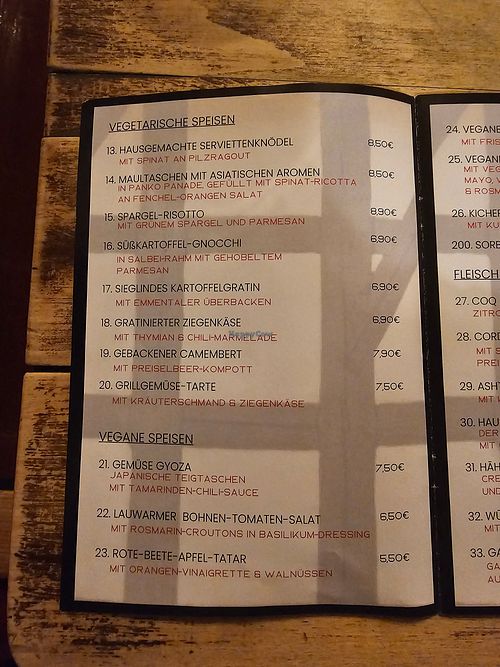 VEGETARISCHE SPEISEN
13. HAUSGEMACHTE SERVIETTENKNÖDEL 8,50€
MIT SPINAT AN PILZRAGOUT
14. MAULTASCHEN MIT ASIATISCHEN AROMEN 8,50€
IN PANKO PANADE, GEFÜLLT MIT SPINAT-RICOTTA
AN FENCHEL-ORANGEN SALAT
15. SPARGEL-RISOTTO 8,90€
MIT GRÜNEM SPARGEL UND PARMESAN
16. SÜßKARTOFFEL-GNOCCHI 6,90€
IN SALBEI-RAHM MIT GEHOBELTEM
PARMESAN
17. SIEGLINDES KARTOFFELGRATIN 6,90€
MIT EMMENTALER ÜBERBACKEN
18. GRATINIERTER ZIEGENKÄSE 6,90€
MIT THYMIAN & CHILI-MARMELADE
19. GEBACKENER CAMEMBERT 7,90€
MIT PREISELBEER-KOMPOTT
20. GRILLGEMÜSE-TARTE 7,50€
MIT KRÄUTERSCHMAND & ZIEGENKÄSE
VEGANE SPEISEN
21. GEMÜSE GYOZA 7,50€
JAPANISCHE TEIGTASCHEN
MIT TAMARINDEN-CHILI-SAUCE
22. LAUWARMER BOHNEN-TOMATEN-SALAT 6,50€
MIT ROSMARIN-CROUTONS IN BASILIKUM-DRESSING
23. ROTE-BEETE-APFEL-TATAR 5,50€
MIT ORANGEN-VINAIGRETTE & WALNÜSSEN
24. VEGANE
MIT FRIS
25. VEGAN
MIT VEG
MAYO, 
& ROSM
26. KICHER
MIT KU
200. SORB
FLEISCH
27. COQ
ZITRO
28. CORD
MIT S
PREI
29. ASH
MIT 
30. HAU
DER
MIT
31. HÄH
CRE
UND
32. WÜ
MIT
33. GA
GA
AU